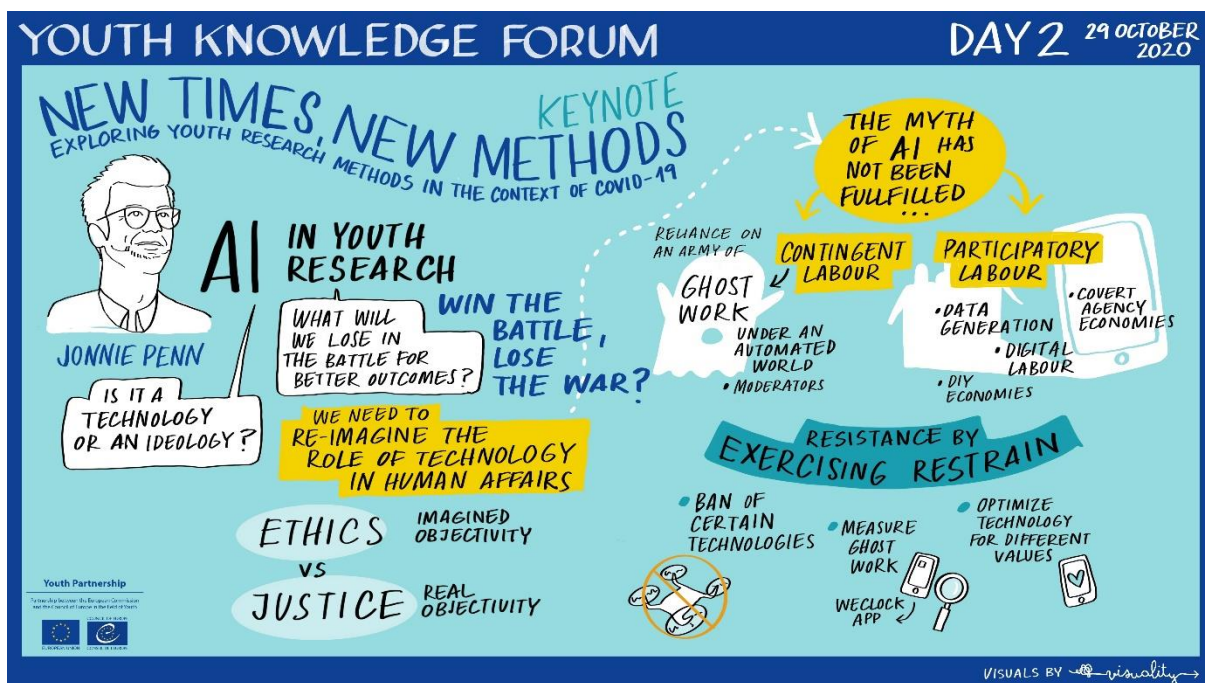 YOUTH KNOWLEDGE FORUM
DAY 2 29 OCTOBER
2020
NEW TIMES, NEW METHODS
KEYNOTE
EXPLORING YOUTH RESEARCH METHODS IN THE CONTEXT OF COVID-19
JONNIE PENN
AI IN YOUTH
RESEARCH
IS IT A
TECHNOLOGY
OR AN IDEOLOGY?
WHAT WILL
WE LOSE IN
THE BATTLE FOR
BETTER OUTCOMES?
WIN THE
BATTLE,
LOSE
THE WAR?
WE NEED TO
RE-IMAGINE THE
ROLE OF TECHNOLOGY
IN HUMAN AFFAIRS
ETHICS IMAGINED
OBJECTIVITY
VS
JUSTICE REAL
OBJECTIVITY
THE MYTH
OF AI HAS
NOT BEEN
FULLFILLED
...
RELIANCE ON
AN ARMY OF
GHOST
WORK
CONTINGENT
LABOUR
UNDER AN
AUTOMATED
WORLD
• MODERATORS
PARTICIPATORY
LABOUR
• DATA
GENERATION
• COVERT
AGENCY
ECONOMIES
• DIGITAL
LABOUR
• DIY
ECONOMIES
RESISTANCE BY
EXERCISING RESTRAIN
• BAN OF
CERTAIN
TECHNOLOGIES
• MEASURE
GHOST
WORK
WECLOCK
APP
• OPTIMIZE
TECHNOLOGY
FOR DIFFERENT
VALUES
Youth Partnership
Partnership between the European Commission
and the Council of Europe in the field of Youth
EUROPEAN UNION
COUNCIL OF EUROPE
VISUALS BY visuality